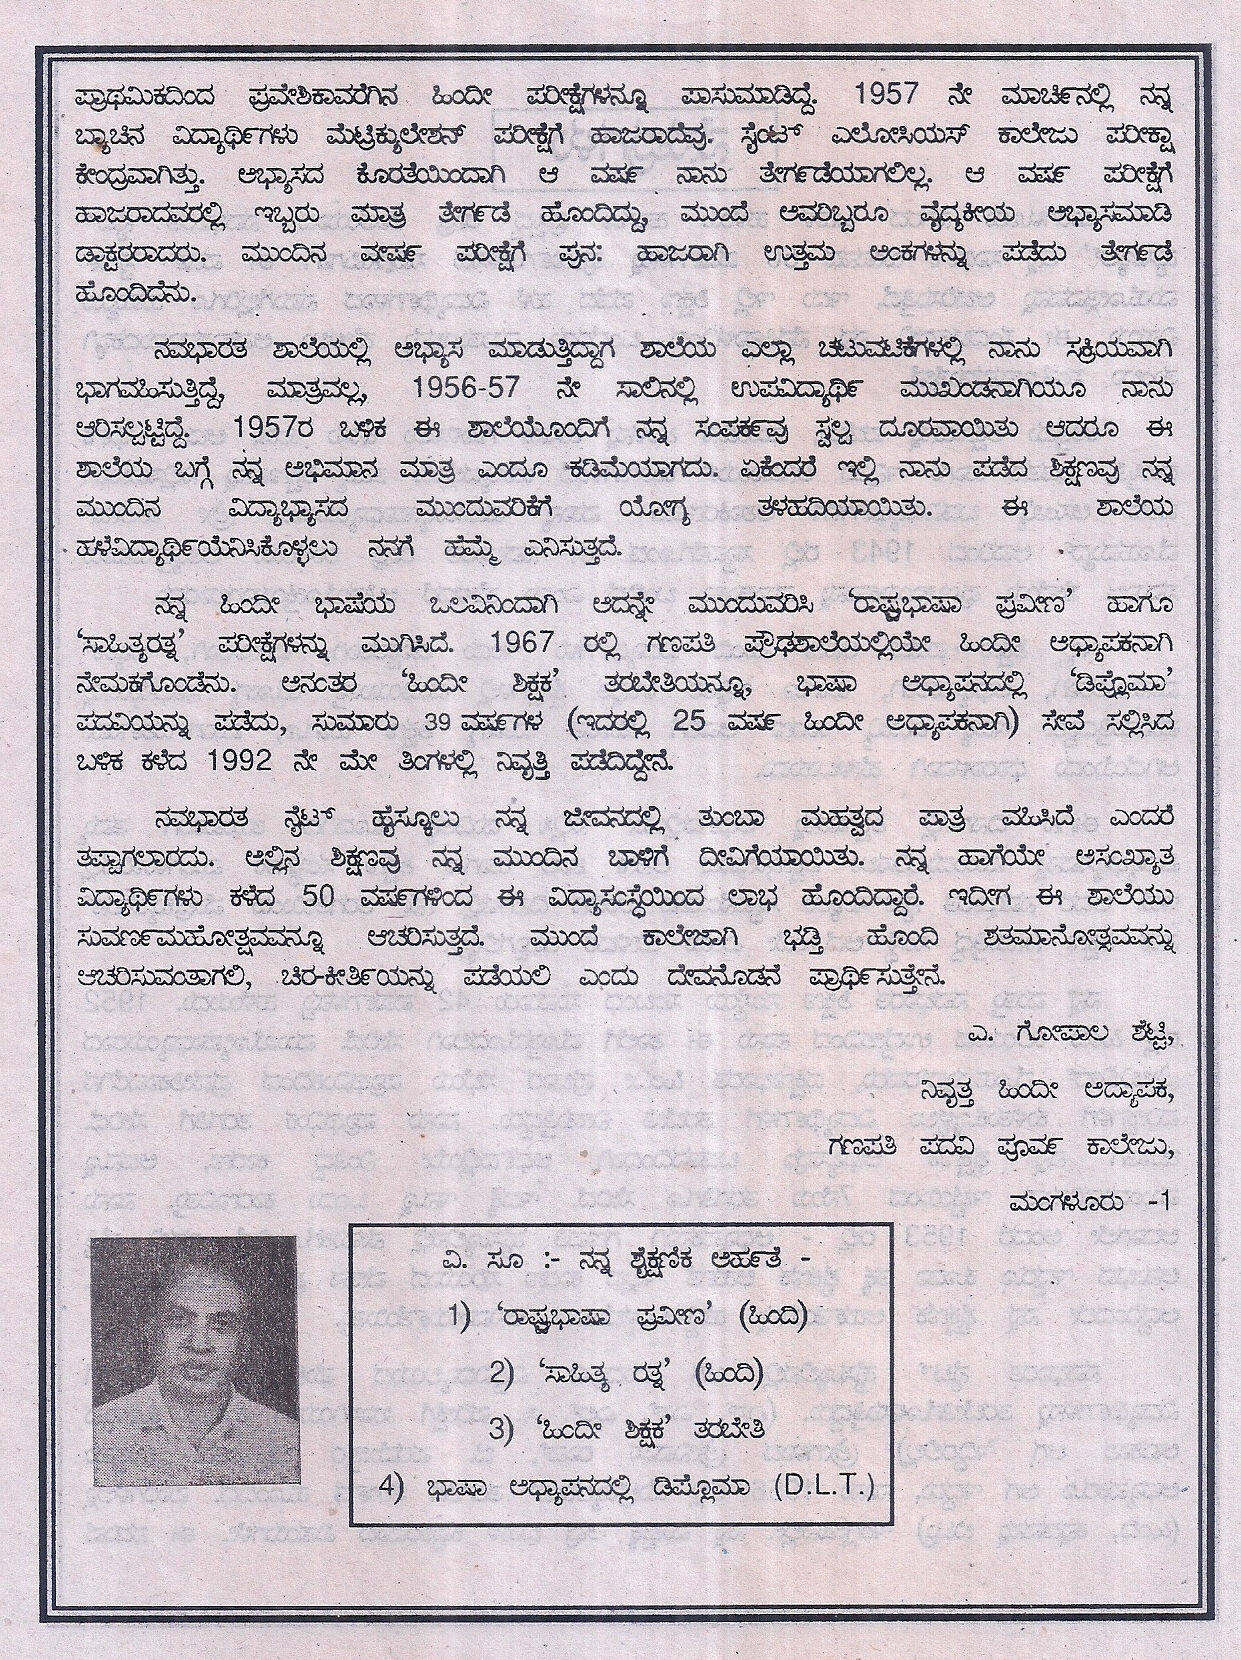 ಪ್ರಾಥಮಿಕದಿಂದ ಪ್ರವೇಶಿಕಾವರೆಗಿನ ಹಿಂದೀ ಪರೀಕ್ಷೆಗಳನ್ನೂ ಪಾಸುಮಾಡಿದ್ದೆ. 1957 ನೇ ಮಾರ್ಚಿನಲ್ಲಿ ನನ್ನ
ಬ್ಯಾಚಿನ ವಿದ್ಯಾರ್ಥಿಗಳು ಮೆಟ್ರಿಕ್ಯುಲೇಶನ್ ಪರೀಕ್ಷೆಗೆ ಹಾಜರಾದೆವು. ಸೈಂಟ್ ಎಲೋಸಿಯಸ್ ಕಾಲೇಜು ಪರೀಕ್ಷಾ
ಕೇಂದ್ರವಾಗಿತ್ತು. ಅಭ್ಯಾಸದ ಕೊರತೆಯಿಂದಾಗಿ ಆ ವರ್ಷ ನಾನು ತೇರ್ಗಡೆಯಾಗಲಿಲ್ಲ. ಆ ವರ್ಷ ಪರೀಕ್ಷೆಗೆ
ಹಾಜರಾದವರಲ್ಲಿ ಇಬ್ಬರು ಮಾತ್ರ ತೇರ್ಗಡೆ ಹೊಂದಿದ್ದು, ಮುಂದೆ ಅವರಿಬ್ಬರೂ ವೈದ್ಯಕೀಯ ಅಭ್ಯಾಸಮಾಡಿ
ಡಾಕ್ಟರರಾದರು. ಮುಂದಿನ ವರ್ಷ ಪರೀಕ್ಷೆಗೆ ಪುನ: ಹಾಜರಾಗಿ ಉತ್ತಮ ಅಂಕಗಳನ್ನು ಪಡೆದು ತೇರ್ಗಡೆ
ಹೊಂದಿದೆನು.
ನವಭಾರತ ಶಾಲೆಯಲ್ಲಿ ಅಭ್ಯಾಸ ಮಾಡುತ್ತಿದ್ದಾಗ ಶಾಲೆಯ ಎಲ್ಲಾ ಚಟುವಟಿಕೆಗಳಲ್ಲಿ ನಾನು ಸಕ್ರಿಯವಾಗಿ
ಭಾಗವಹಿಸುತ್ತಿದ್ದೆ, ಮಾತ್ರವಲ್ಲ, 1956-57 ನೇ ಸಾಲಿನಲ್ಲಿ ಉಪವಿದ್ಯಾರ್ಥಿ ಮುಖಂಡನಾಗಿಯೂ ನಾನು
ಆರಿಸಲ್ಪಟ್ಟಿದ್ದೆ. 1957ರ ಬಳಿಕ ಈ ಶಾಲೆಯೊಂದಿಗೆ ನನ್ನ ಸಂಪರ್ಕವು ಸ್ವಲ್ಪ ದೂರವಾಯಿತು ಆದರೂ ಈ
ಶಾಲೆಯ ಬಗ್ಗೆ ನನ್ನ ಅಭಿಮಾನ ಮಾತ್ರ ಎಂದೂ ಕಡಿಮೆಯಾಗದು. ಏಕೆಂದರೆ ಇಲ್ಲಿ ನಾನು ಪಡೆದ ಶಿಕ್ಷಣವು ನನ್ನ
ಮುಂದಿನ ವಿದ್ಯಾಭ್ಯಾಸದ ಮುಂದುವರಿಕೆಗೆ ಯೋಗ್ಯ ತಳಹದಿಯಾಯಿತು. ಈ ಶಾಲೆಯ
ಹಳೆವಿದ್ಯಾರ್ಥಿಯೆನಿಸಿಕೊಳ್ಳಲು ನನಗೆ ಹೆಮ್ಮೆ ಎನಿಸುತ್ತದೆ.
ನನ್ನ ಹಿಂದೀ ಭಾಷೆಯ ಒಲವಿನಿಂದಾಗಿ ಅದನ್ನೇ ಮುಂದುವರಿಸಿ 'ರಾಷ್ಟ್ರಭಾಷಾ ಪ್ರವೀಣ' ಹಾಗೂ
'ಸಾಹಿತ್ಯರತ್ನ' ಪರೀಕ್ಷೆಗಳನ್ನು ಮುಗಿಸಿದೆ. 1967 ರಲ್ಲಿ ಗಣಪತಿ ಪ್ರೌಢಶಾಲೆಯಲ್ಲಿಯೇ ಹಿಂದೀ ಅಧ್ಯಾಪಕನಾಗಿ
ನೇಮಕಗೊಂಡೆನು. ಅನಂತರ 'ಹಿಂದೀ ಶಿಕ್ಷಕ' ತರಬೇತಿಯನ್ನೂ, ಭಾಷಾ ಅಧ್ಯಾಪನದಲ್ಲಿ 'ಡಿಪ್ಲೊಮಾ'
ಪದವಿಯನ್ನು ಪಡೆದು, ಸುಮಾರು 39 ವರ್ಷಗಳ (ಇದರಲ್ಲಿ 25 ವರ್ಷ ಹಿಂದೀ ಅಧ್ಯಾಪಕನಾಗಿ) ಸೇವೆ ಸಲ್ಲಿಸಿದ
ಬಳಿಕ ಕಳೆದ 1992 ನೇ ಮೇ ತಿಂಗಳಲ್ಲಿ ನಿವೃತ್ತಿ ಪಡೆದಿದ್ದೇನೆ.
ನವಭಾರತ ನೈಟ್ ಹೈಸ್ಕೂಲು ನನ್ನ ಜೀವನದಲ್ಲಿ ತುಂಬಾ ಮಹತ್ವದ ಪಾತ್ರ ವಹಿಸಿದೆ ಎಂದರೆ
ತಪ್ಪಾಗಲಾರದು. ಅಲ್ಲಿನ ಶಿಕ್ಷಣವು ನನ್ನ ಮುಂದಿನ ಬಾಳಿಗೆ ದೀವಿಗೆಯಾಯಿತು. ನನ್ನ ಹಾಗೆಯೇ ಅಸಂಖ್ಯಾತ
ವಿದ್ಯಾರ್ಥಿಗಳು ಕಳೆದ 50 ವರ್ಷಗಳಿಂದ ಈ ವಿದ್ಯಾಸಂಸ್ಥೆಯಿಂದ ಲಾಭ ಹೊಂದಿದ್ದಾರೆ. ಇದೀಗ ಈ ಶಾಲೆಯು
ಸುವರ್ಣಮಹೋತ್ಸವವನ್ನೂ ಆಚರಿಸುತ್ತದೆ. ಮುಂದೆ ಕಾಲೇಜಾಗಿ ಭಡ್ತಿ ಹೊಂದಿ ಶತಮಾನೋತ್ಸವವನ್ನು
ಆಚರಿಸುವಂತಾಗಲಿ, ಚಿರ-ಕೀರ್ತಿಯನ್ನು ಪಡೆಯಲಿ ಎಂದು ದೇವನೊಡನೆ ಪ್ರಾರ್ಥಿಸುತ್ತೇನೆ.
ಎ. ಗೋಪಾಲ ಶೆಟ್ಟಿ,
ನಿವೃತ್ತ ಹಿಂದೀ ಅದ್ಯಾಪಕ,
ಗಣಪತಿ ಪದವಿ ಪೂರ್ವ ಕಾಲೇಜು,
ಮಂಗಳೂರು -1
ವಿ. ಸೂ :- ನನ್ನ ಶೈಕ್ಷಣಿಕ ಅರ್ಹತೆ -
1) 'ರಾಷ್ಟ್ರಭಾಷಾ ಪ್ರವೀಣ' (ಹಿಂದಿ)
2) 'ಸಾಹಿತ್ಯ ರತ್ನ' (ಹಿಂದಿ)
3) 'ಹಿಂದೀ ಶಿಕ್ಷಕ' ತರಬೇತಿ
4) ಭಾಷಾ ಅಧ್ಯಾಪನದಲ್ಲಿ ಡಿಪ್ಲೊಮಾ (D.L.T.)